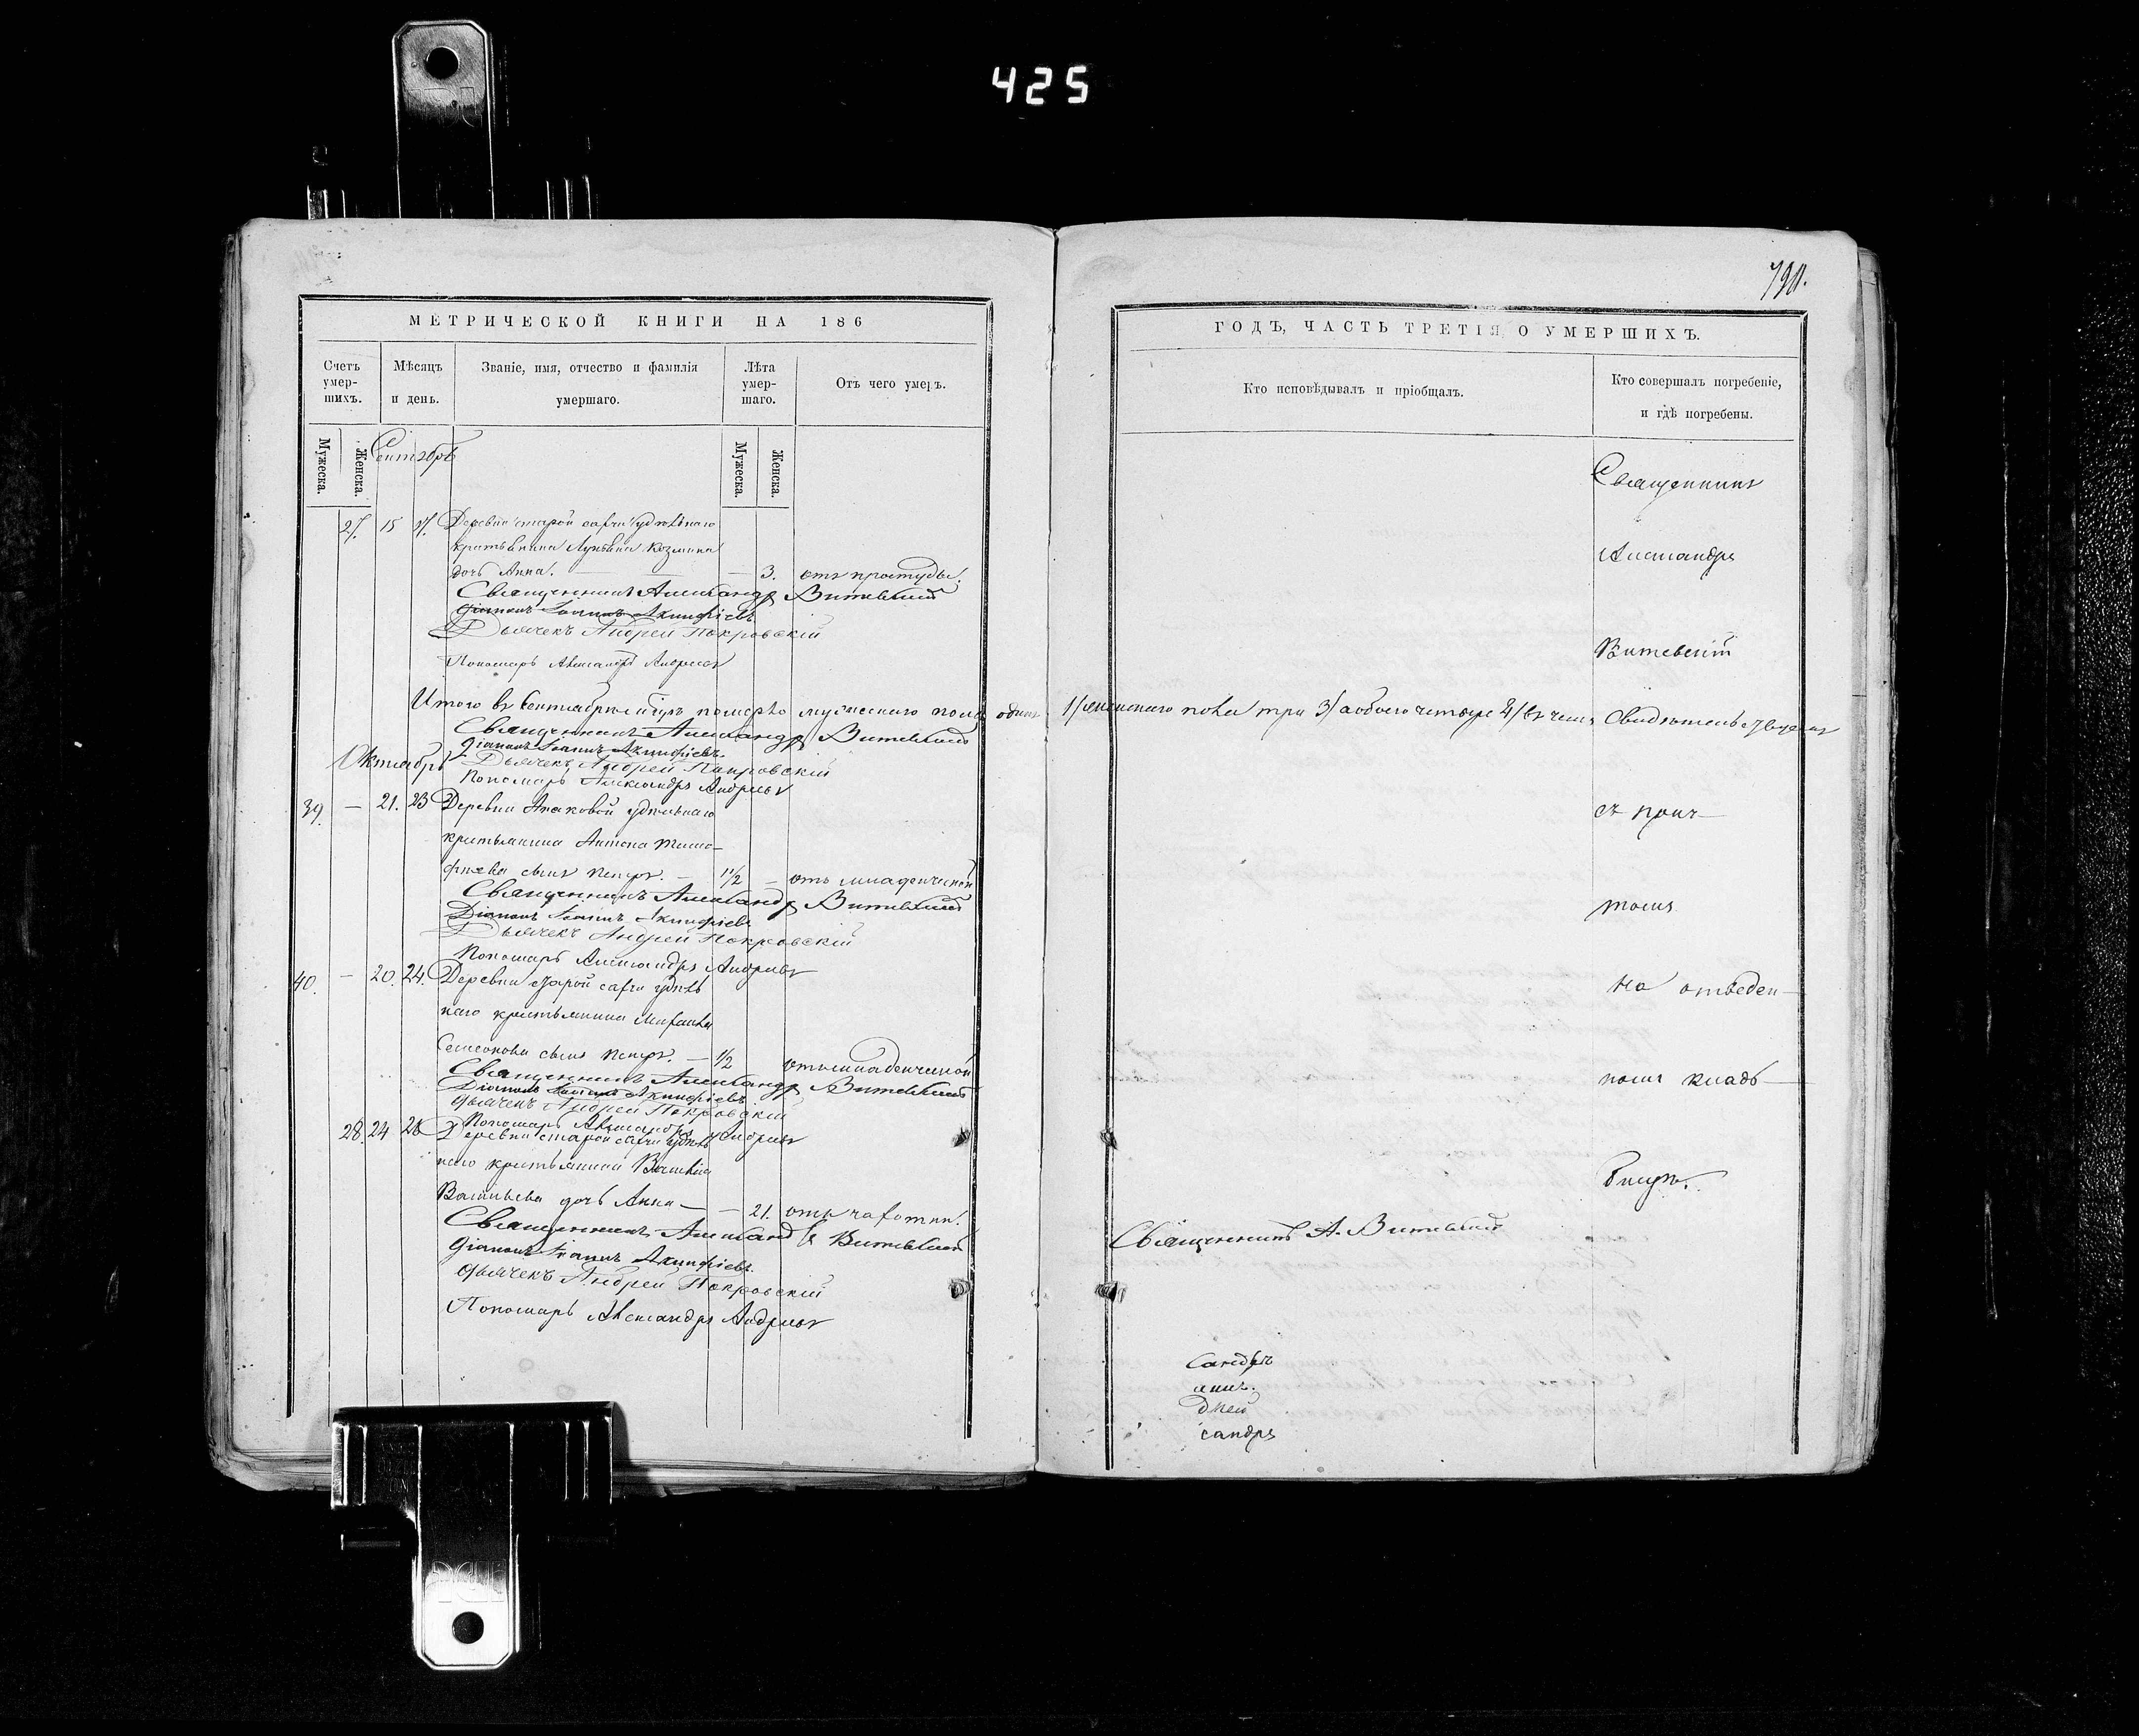 425
МЕТРИЧЕСКОЙ КНИГИ НА 186
Счетъ умер-шихъ.
Мѣсяцъ и день.
Званіе, имя, отчество и фамилія умершаго.
Лѣта умер-шаго.
Отъ чего умеръ.
Мужеска.
Женска.
Мужеска.
Женска.
Сентябрь
27. 15 17. Деревни старой сахчи удѣльнаго
крестьянина Козмина
дочь Анна. — — 3. отъ простуды.
Священникъ Александръ Витевскій
Діаконъ Іоаннъ Акинфіевъ
Дьячекъ Андрей Покровскій
Пономарь Александръ Андреевъ
Итого въ Сентябрѣ мѣсяцѣ померло мужескаго пола одинъ
Священникъ Александръ Витевскій
Діаконъ Іоаннъ Акинфіевъ
Октябрь
Дьячекъ Андрей Покровскій
Пономарь Александръ Андреевъ
39. — 21. 23 Деревни удѣльнаго
крестьянина Антона Тимо-
фѣева сынъ Петръ. — 1 1/2 — отъ младенческой
Священникъ Александръ Витевскій
Діаконъ Іоаннъ Акинфіевъ
Дьячекъ Андрей Покровскій
Пономарь Александръ Андреевъ
40. — 20. 24. Деревни старой сахчи удѣль
наго крестьянина Михаила
Семенова сынъ Петръ. — 1/2 отъ младенческой
Священникъ Александръ Витевскій
Діаконъ Іоаннъ Акинфіевъ
Дьячекъ Андрей Покровскій
Пономарь Александръ Андреевъ
28. 24 26 Деревни старой сахчи удѣль
наго крестьянина Василія
Васильева дочь Анна — — 21. отъ чахотки.
Священникъ Александръ Витевскій
Діаконъ Іоаннъ Акинфіевъ
Дьячекъ Андрей Покровскій
Пономарь Александръ Андреевъ
ГОДЪ, ЧАСТЬ ТРЕТІЯ, О УМЕРШИХЪ.
Кто исповѣдывалъ и пріобщалъ.
Кто совершалъ погребеніе, и гдѣ погребены.
Священникъ
Александръ
Витевскій
1/ женскаго пола три 3/ а обоего четыре 4/ въ чемъ свидѣтельствуемъ
съ прич—
томъ
на отведен—
номъ кладъ—
бищѣ.
Священникъ А. Витевскій
сандръ
аннъ.
дрей
сандръ